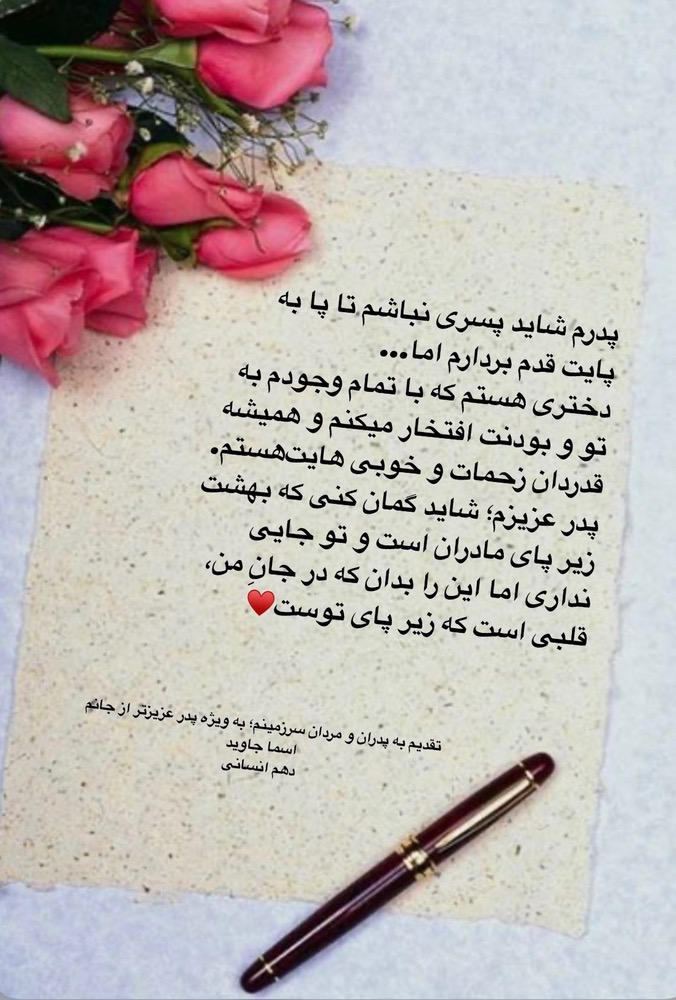 پدرم شاید پسری نباشم تا پا به
پایت قدم بردارم اما...
دختری هستم که با تمام وجودم به
تو و بودنت افتخار میکنم و همیشه
قدردان زحمات و خوبی هایت‌هستم.
پدر عزیزم؛ شاید گمان کنی که بهشت
زیر پای مادران است و تو جایی
نداری اما این را بدان که در جانِ من،
قلبی است که زیر پای توست♥️
تقدیم به پدران و مردان سرزمینم؛ به ویژه پدر عزیزتر از جانم
اسما جاوید
دهم انسانی